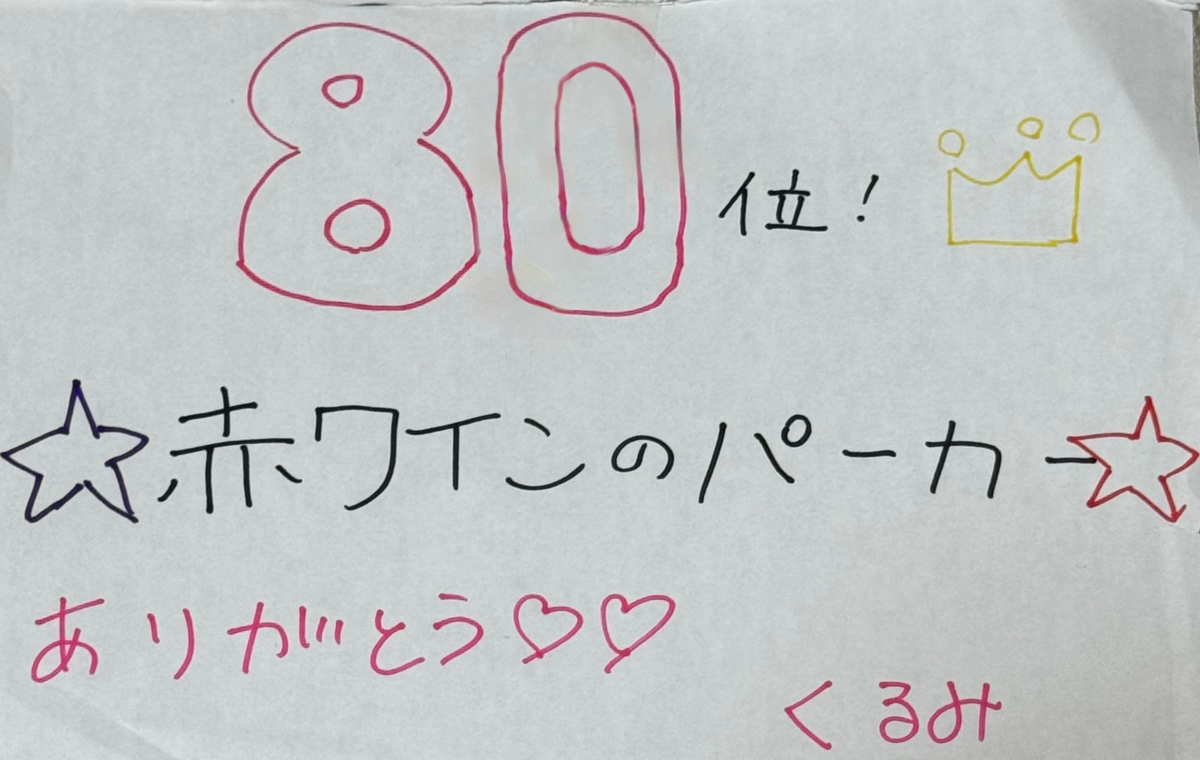 80位!
☆赤ワインのパーカー☆
ありがとう♡♡
くるみ